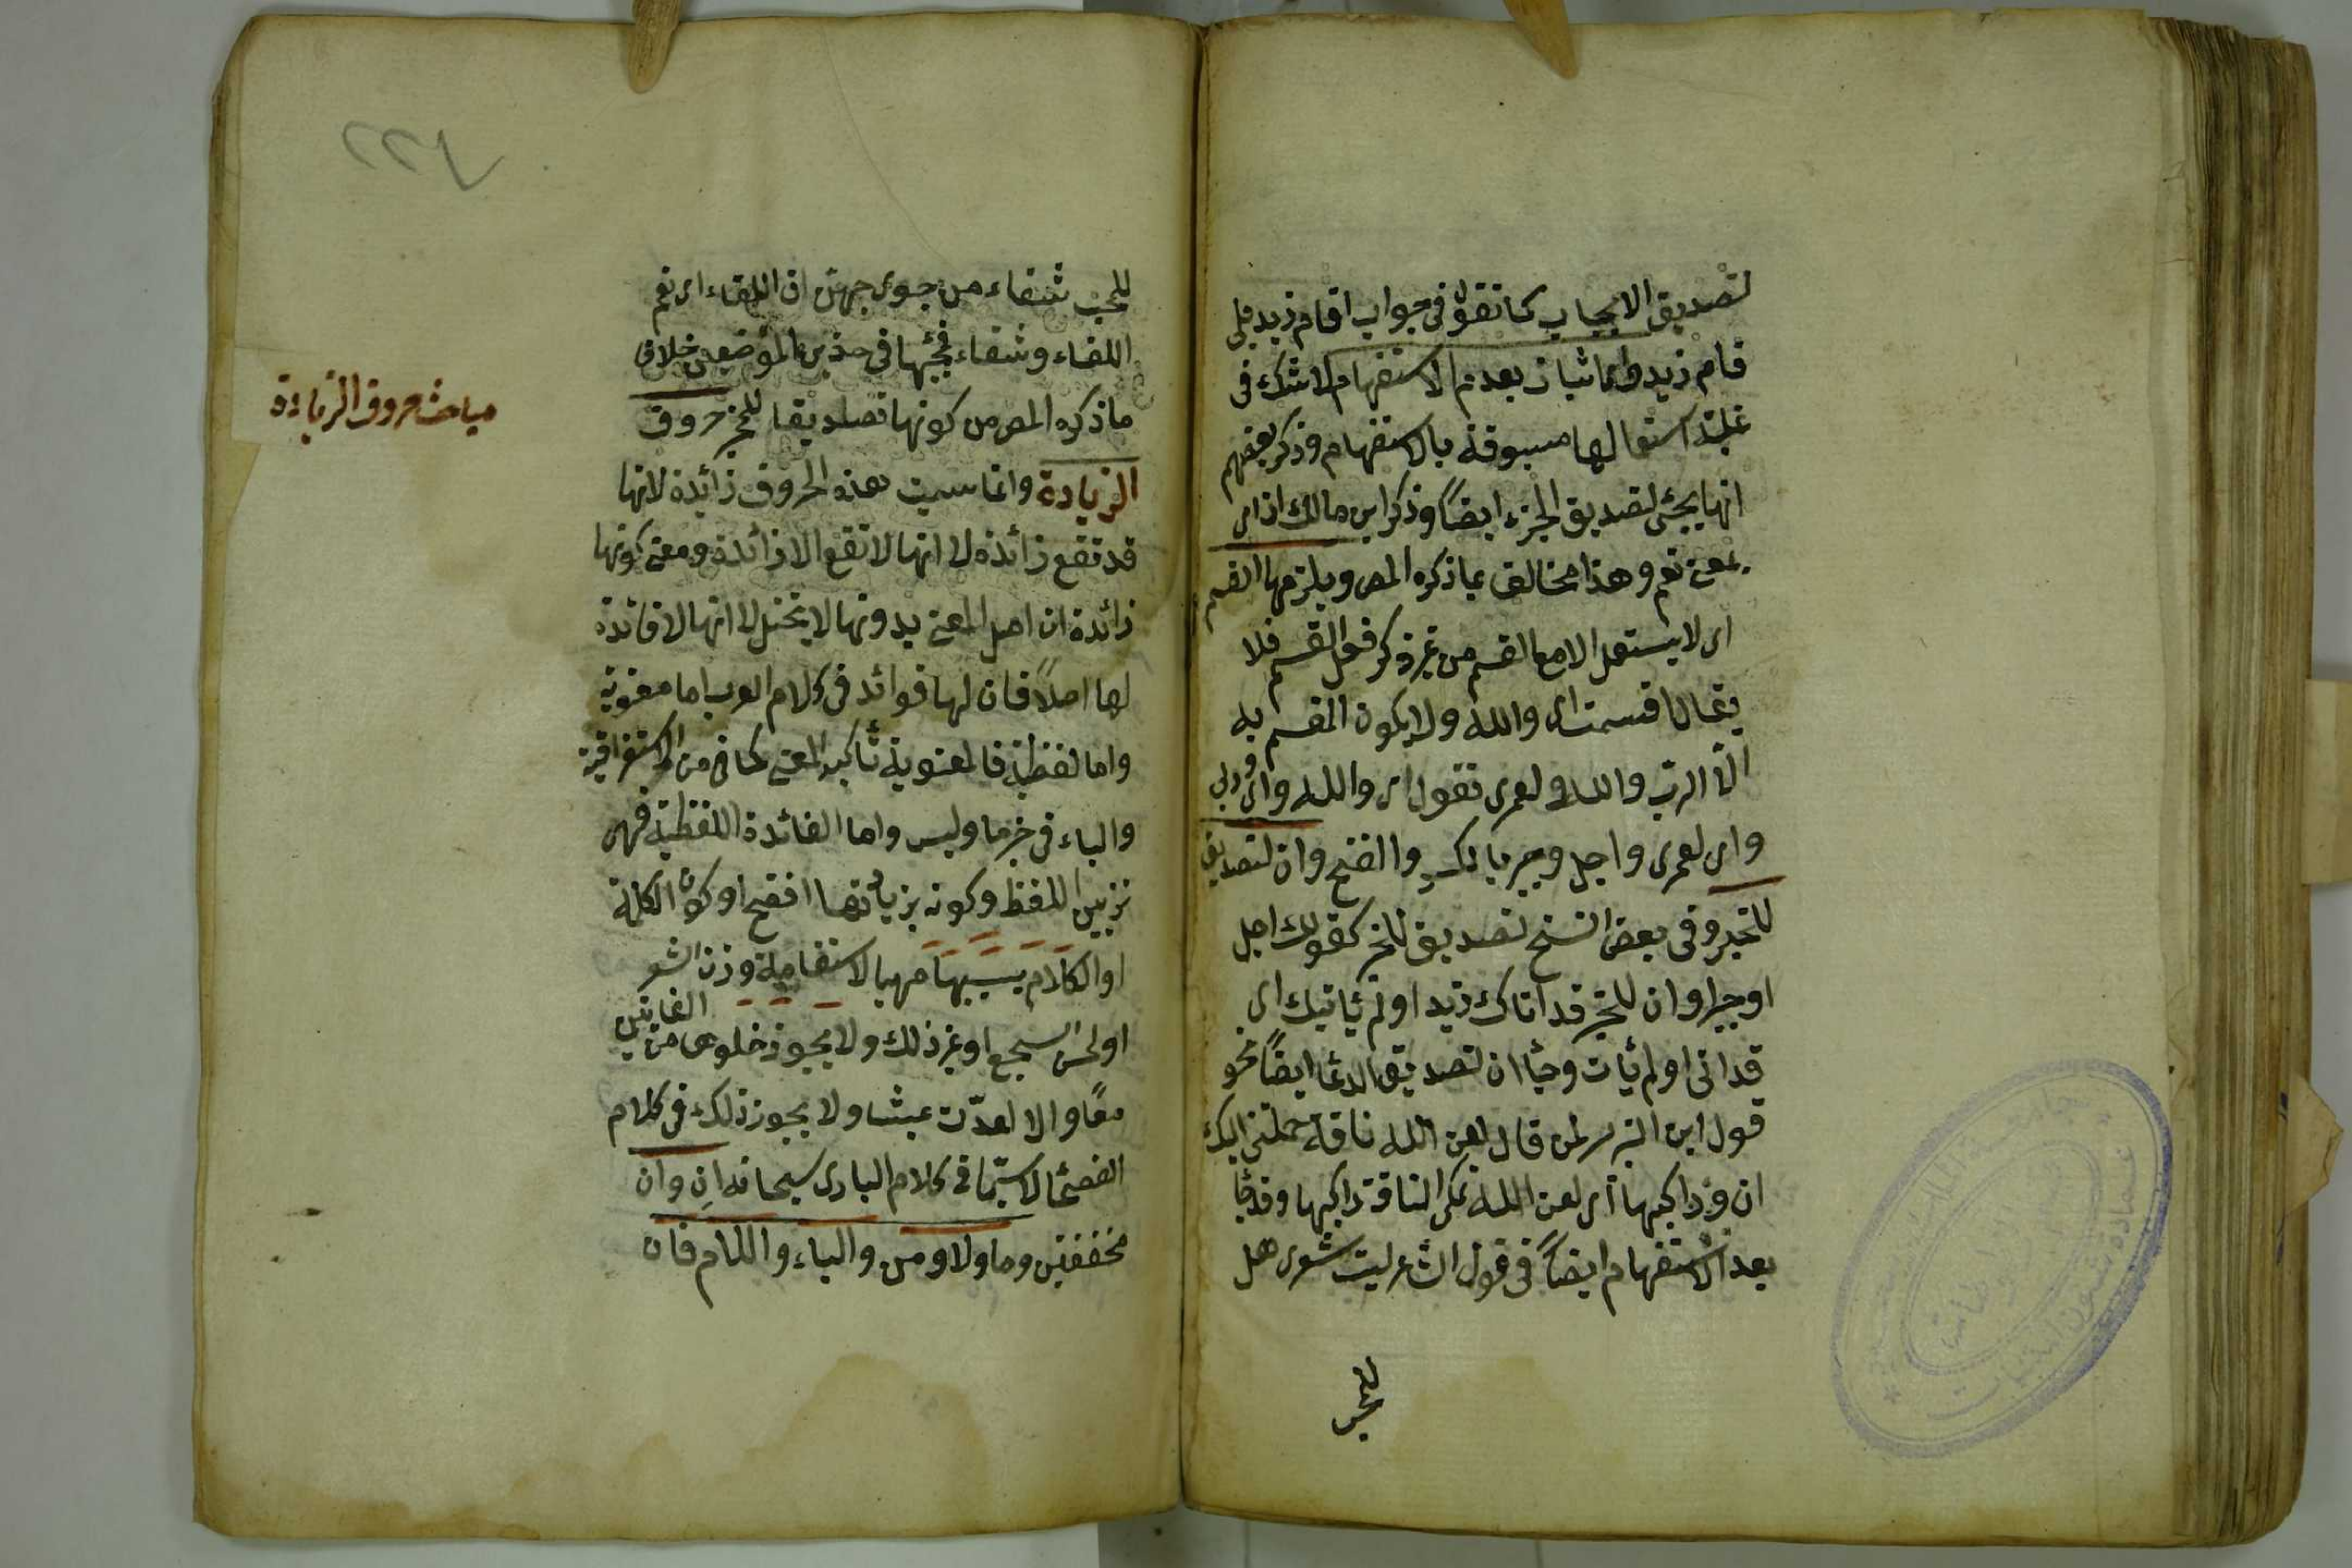 لتصديق الايجاب كما تقول فى جواب اقام زيد بلى
قام زيد بعدم الاستفهام لا شك فى
غلبة استعمالها مسبوقة بالاستفهام وذكر بعضهم
انها يجئ لتصديق الخبر ايضاً وذكر ابن مالك ان اى
بمعنى نعم وهذا مخالف لما ذكره المص ويلزمها القسم
اى لا يستعمل الا مع القسم من غير ذكر فعل القسم فلا
يقال اقسمت اى والله ولا يكون المقسم به
الا الرب والله ولعمرى تقول اى والله واى وربى
واى لعمرى واجل وجير بالكسر والفتح وان لتصديق
للخبر وفى بعض النسخ تصديق للخبر كقولك اجل
او جير او ان للخبر قد اتاك زيد او لم يأتيك اى
قد اتى او لم يأت وجئا ان لتصديق الدعا ايضاً نحو
قول ابن الزبير لمن قال لعن الله ناقة حملتنى اليك
ان وراكبها اى لعن الله تلك الناقة وراكبها وقد جأ
بعد الاستفهام ايضاً فى قول الشاعر ليت شعرى هل
للمحب
مباحث حروف الزيادة
للمحب شفاء من جوى حبهن ان اللقاء اى نعم
اللقاء وشفاء فمجيئها فى هذين الموضعين خلاف
ما ذكره المص من كونها تصديقا للخبر حروف
الزيادة وانما سميت هذه الحروف زائدة لانها
قد تقع زائدة لا انها لا تقع الا زائدة ومعنى كونها
زائدة ان اصل المعنى بدونها لا يختل لا انها لا فائدة
لها اصلاً فان لها فوائد فى كلام العرب اما معنوية
واما لفظية فالمعنوية تأكيد المعنى كما فى من الاستغراقية
والباء فى خبر ما وليس واما الفائدة اللفظية فهى
تزيين اللفظ وكونه بزيادتها افصح او كون الكلمة
او الكلام بسببها مهيا لاستقامة وزن الشعر
او لحسن السجع او غير ذلك ولا يجوز خلوها من الفائدتين
معًا والا لعدّت عبثا ولا يجوز ذلك فى كلام
الفصحأ لا سيّما فى كلام البارى سبحانه ان وان
مخففتين وما ولا ومن والباء واللام فان